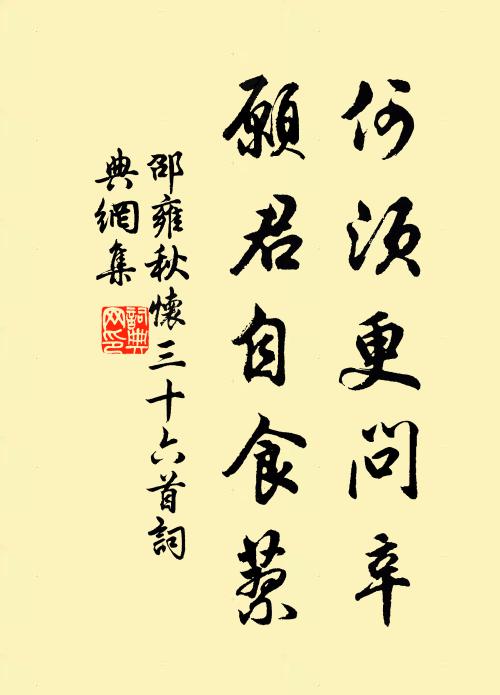 何須更問辛
願君自食蓼
邵雍秋懷三十六首詞
典網集
詞典
网印